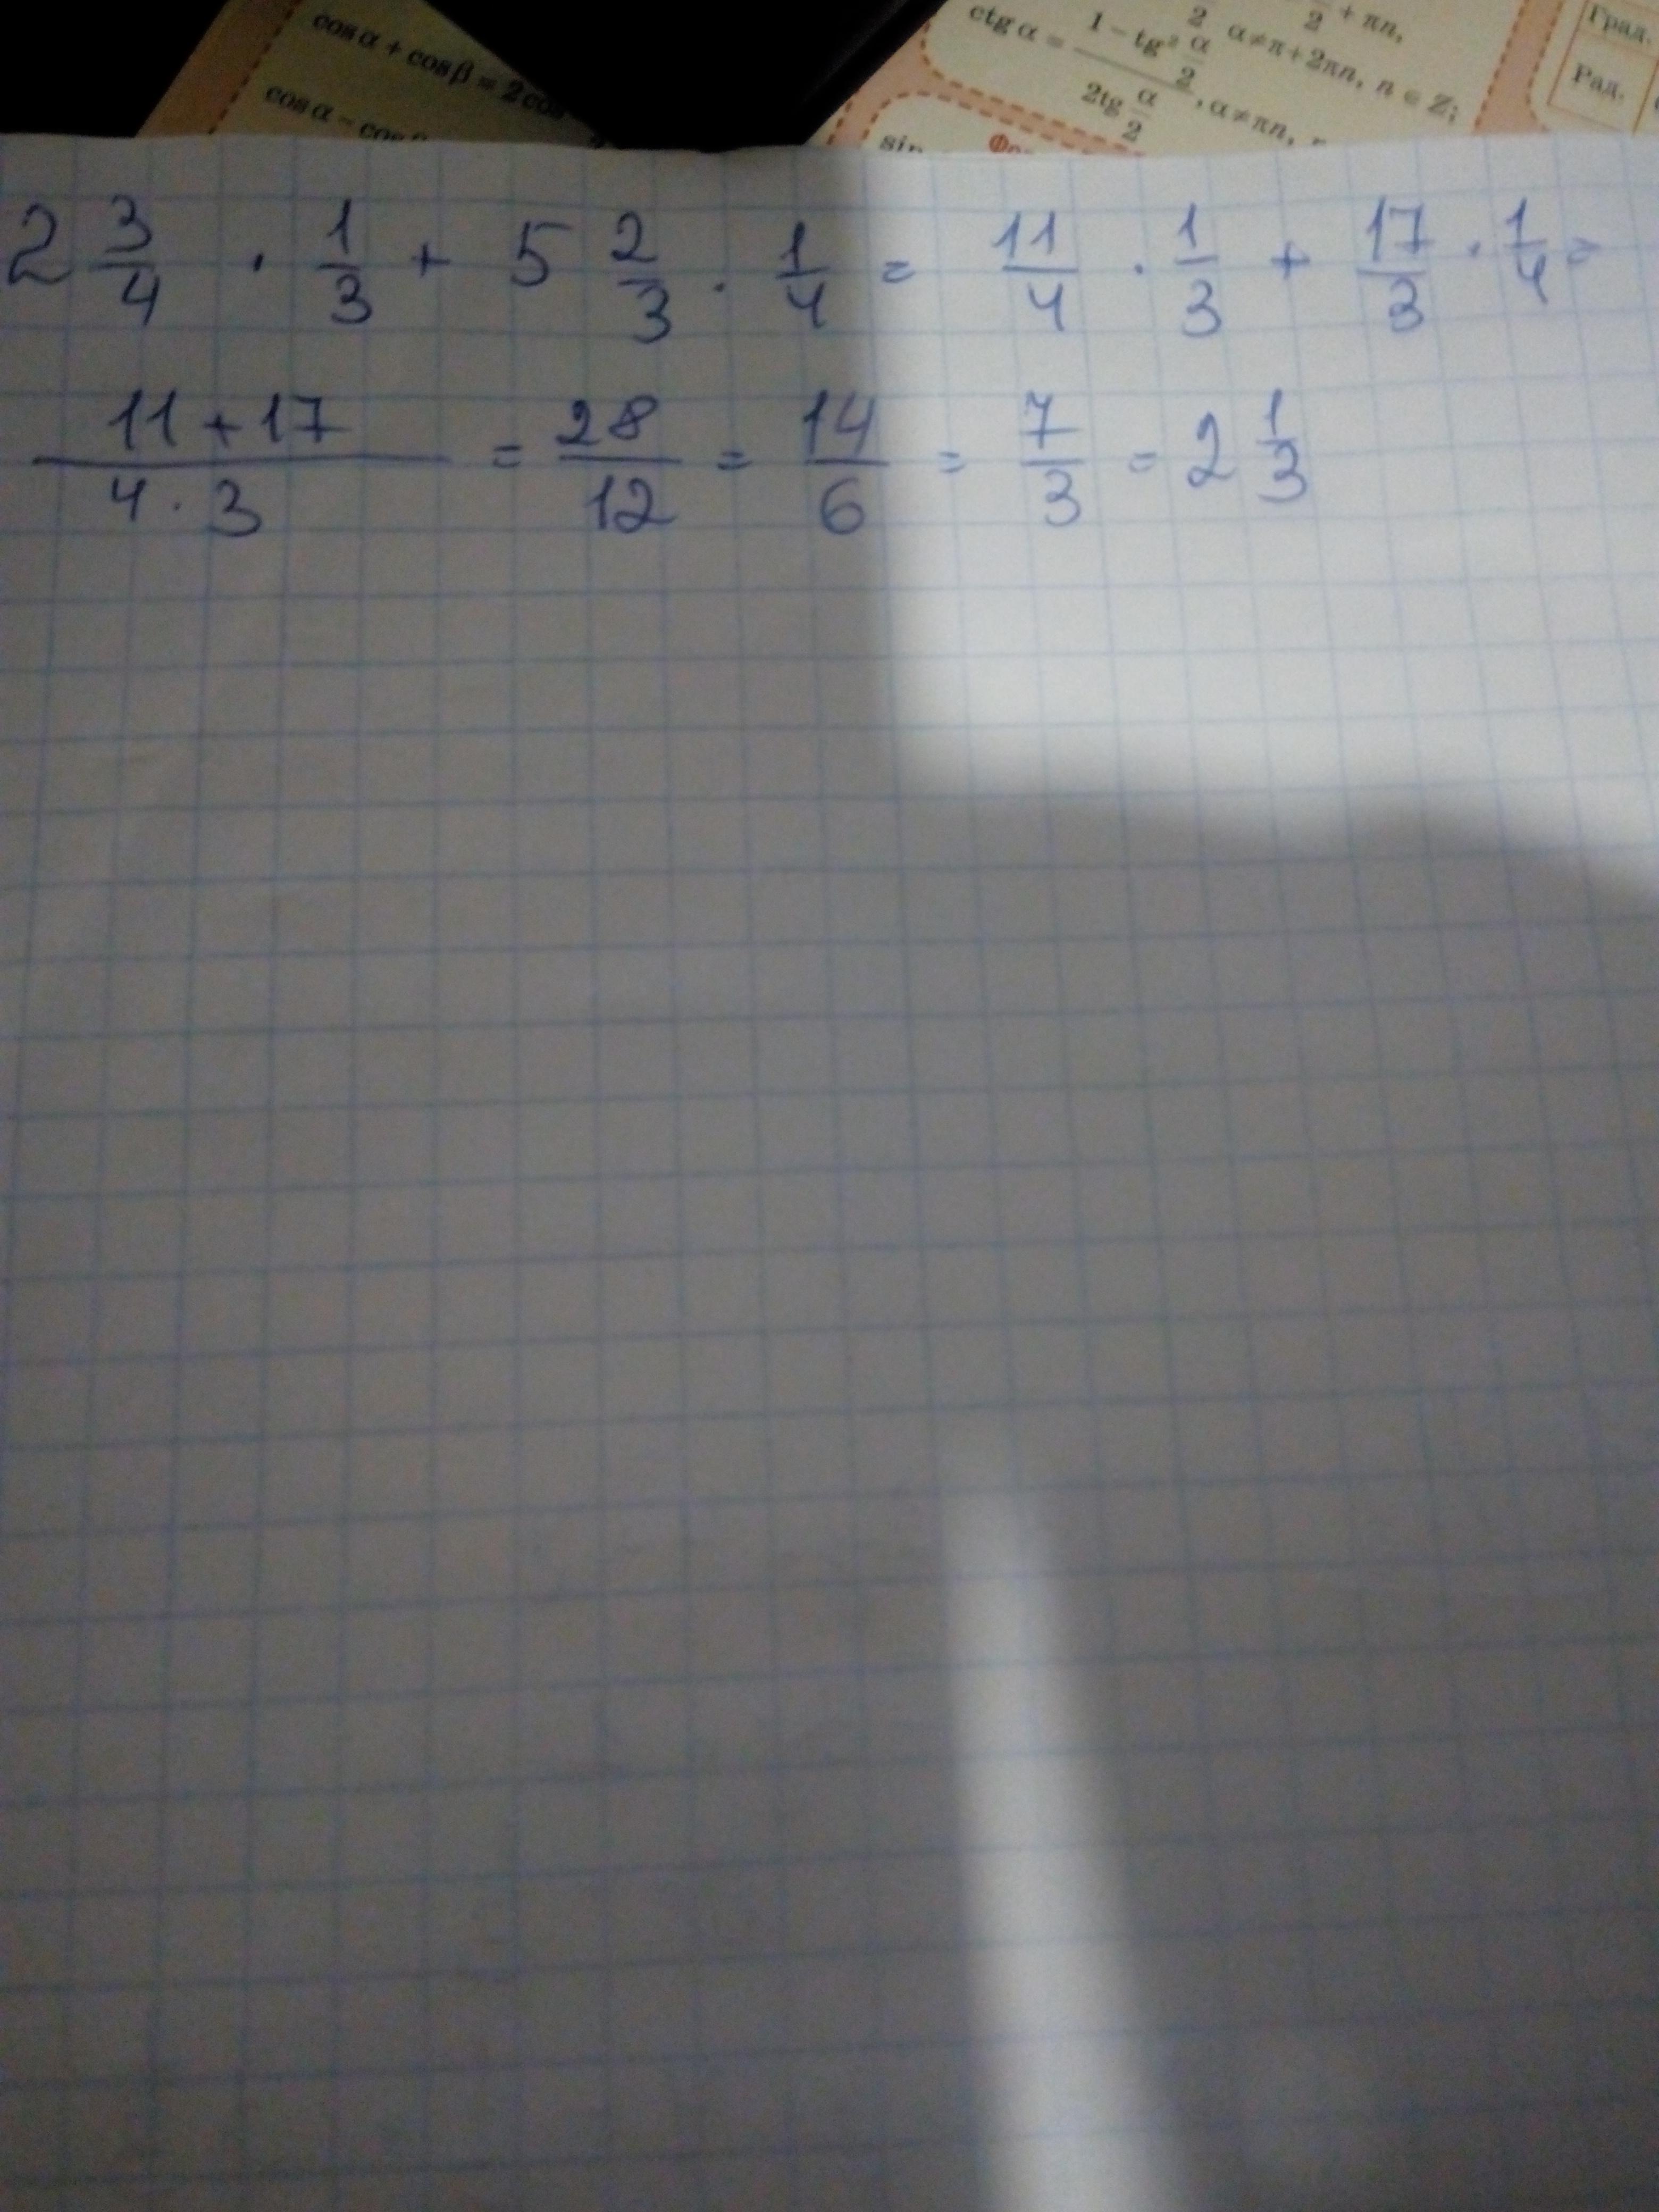 cos α + cos β = 2 cos
cos α − cos
ctg α = (1 − tg² α/2)/(2tg α/2), α ≠ πn,
α ≠ π + 2πn, n ∈ Z;
2 + πn,
sin
Град.
Рад.
2 3/4 · 1/3 + 5 2/3 · 1/4 = 11/4 · 1/3 + 17/3 · 1/4 =
(11 + 17)/(4 · 3) = 28/12 = 14/6 = 7/3 = 2 1/3